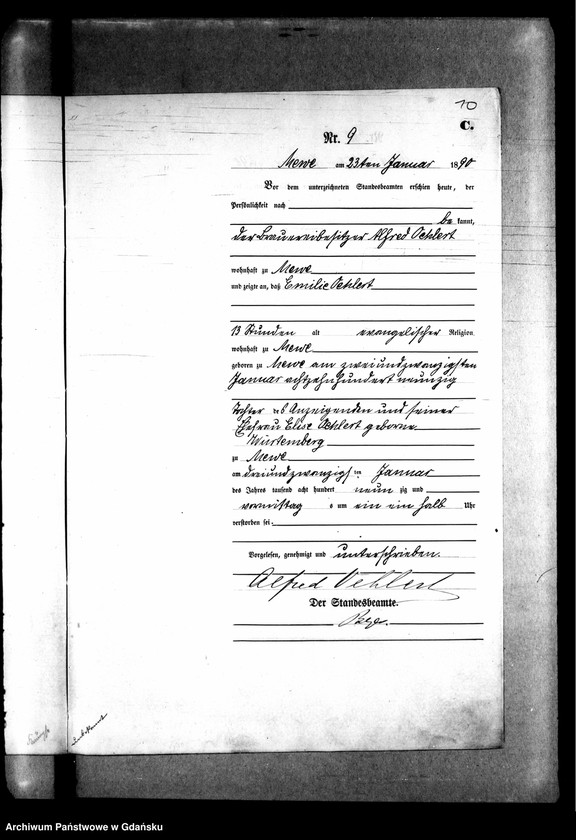 10
C.
Nr. 9
Mewe am 23ten Januar 1890
Vor dem unterzeichneten Standesbeamten erschien heute, der
Persönlichkeit nach
be kannt,
der Brauereibesitzer Alfred Oehlert
wohnhaft zu Mewe
und zeigte an, daß Emilie Oehlert
13 Stunden alt evangelischer Religion
wohnhaft zu Mewe
geboren zu Mewe am zweiundzwanzigsten
Januar achtzehnhundert neunzig
Tochter des Anzeigenden und seiner
Ehefrau Elise Oehlert geborne
Würtemberg
zu Mewe
am dreiundzwanzigs ten Januar
des Jahres tausend acht hundert neun zig und
vormittag s um ein ein halb Uhr
verstorben sei.
Vorgelesen, genehmigt und unterschrieben.
Alfred Oehlert
Der Standesbeamte.
Archiwum Państwowe w Gdańsku